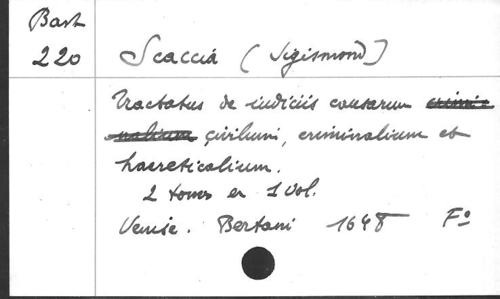 Bast
220
Scaccia (Sigismond)
Tractatus de iudiciis causarum crimi-
nalium civilium, criminalium et
haereticalium.
2 toms en 1 vol.
Venise. Bertani 1648 Fo